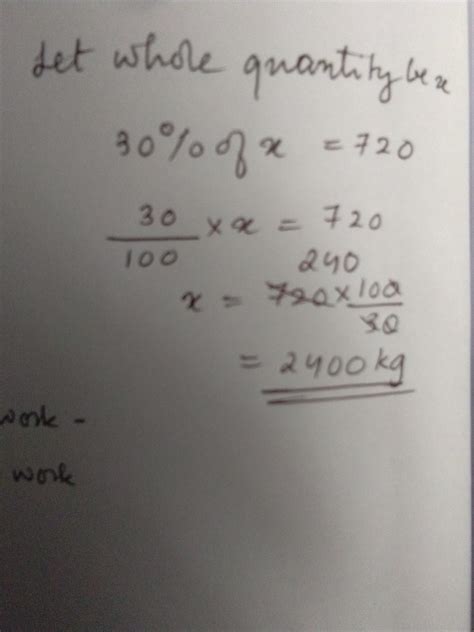 Let whole quantity be x
30% of x = 720
30/100 × x = 720
240
x = 720 × 100/30
= 2400 kg
work -
work